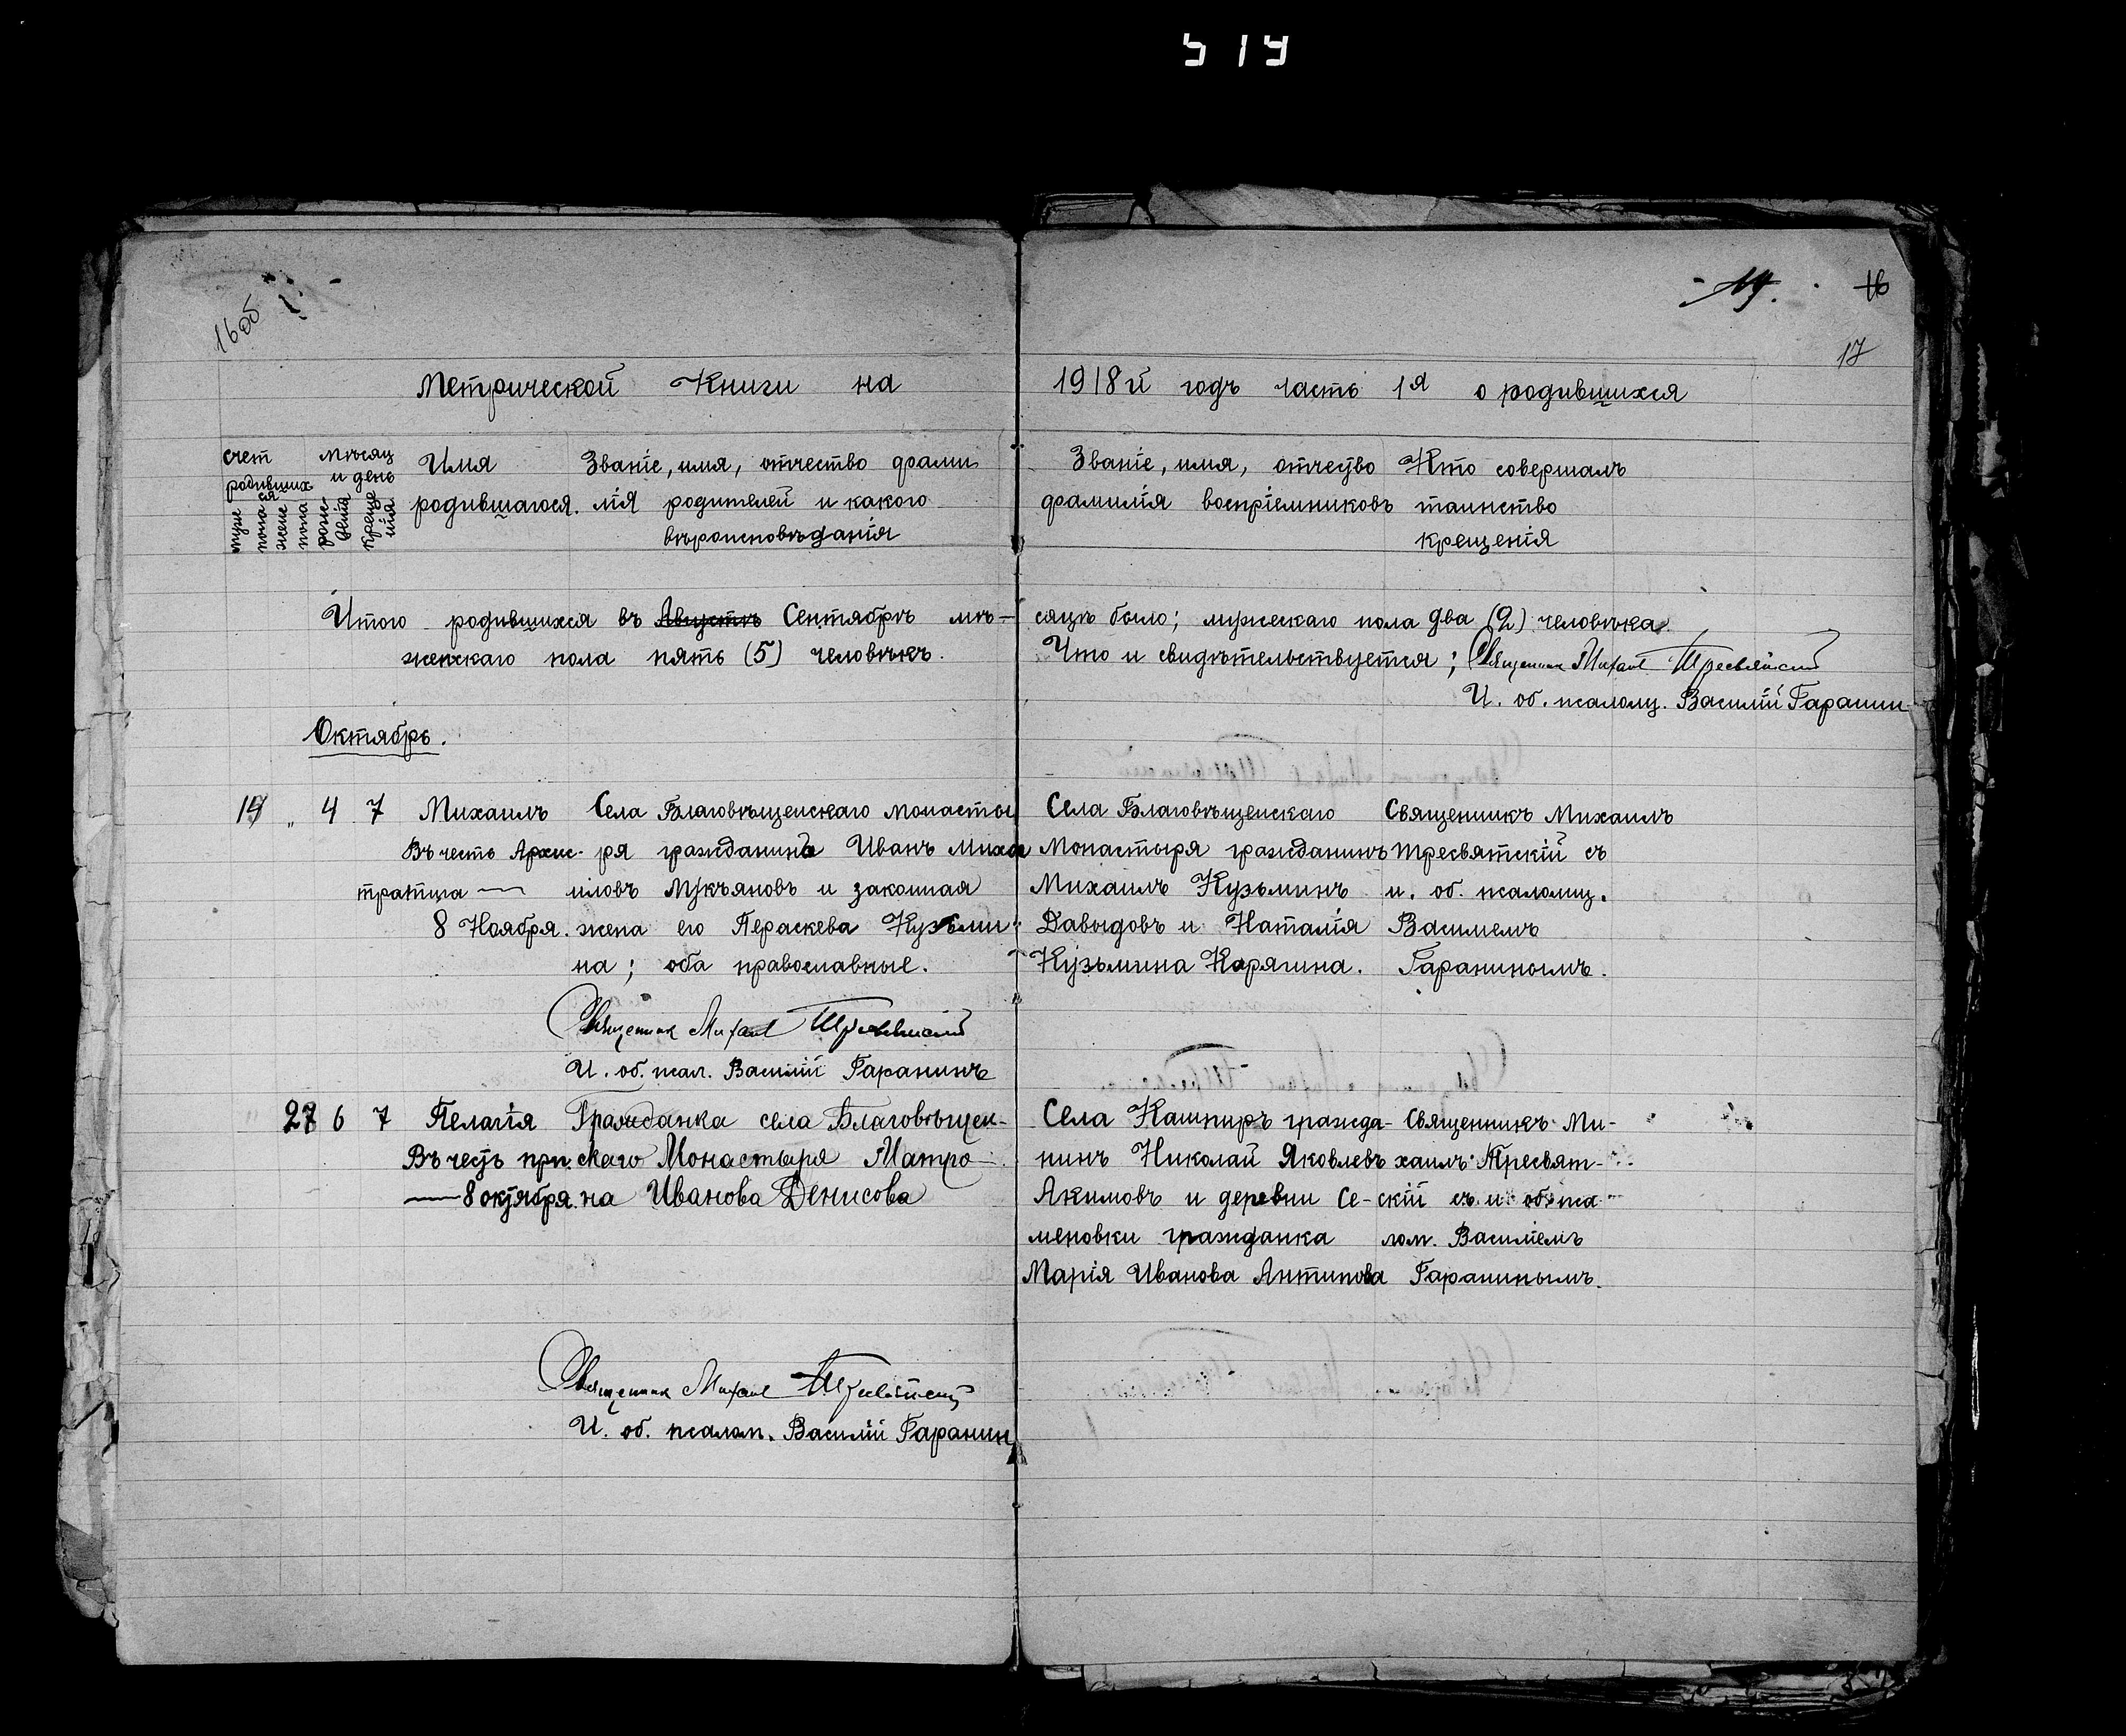 519
16об
19.
16
17
Метрической Книги на 1918й годъ часть 1я о родившихся
счет родившихся
муж пола
жене пола
мѣсяц и день
рожденія
крещенія
Имя родившагося.
Званіе, имя, отчество фамилія родителей и какого вѣроисповѣданія
Званіе, имя, отчество фамилія воспріемниковъ
Кто совершалъ таинство крещенія
Итого родившихся въ Августѣ Сентябрѣ мѣ-
сяцѣ было; мужескаго пола два (2) человѣка.
женскаго пола пять (5) человѣкъ.
Что и свидѣтельствуется; Священник Михаил Тресвятский
И. об. псаломщ. Василій Гаранин
Октябрь.
15 „ 4 7
Михаилъ
Въ честь Архис-
тратига
8 Ноября.
Села Благовѣщенскаго Монасты
ря гражданинъ Иванъ Миха
иловъ Мукъяновъ и законная
жена его Параскева Кузьми-
на; оба православные.
Села Благовѣщенскаго
Монастыря гражданинъ
Михаилъ Кузьминъ
Давыдовъ и Наталія
Кузьмина Карягина.
Священникъ Михаилъ
Тресвятскій съ
и. об. псаломщ.
Василіемъ
Гаранинымъ.
Священник Михаил Тресвятский
И. об. псал. Василій Гаранинъ
„ 27 6 7
Пелагія
Въ честь прп.
8 октября.
Гражданка села Благовѣщен-
скаго Монастыря Матро-
на Иванова Денисова
Села Кашпиръ гражда-
нинъ Николай Яковлевъ
Акимовъ и деревни Се-
меновки гражданка
Марія Иванова Антипова
Священникъ Ми-
хаилъ Тресвят-
скій съ и. об. пса-
лом. Василіемъ
Гаранинымъ.
Священник Михаил Тресвятский
И. об. псалом. Василій Гаранин